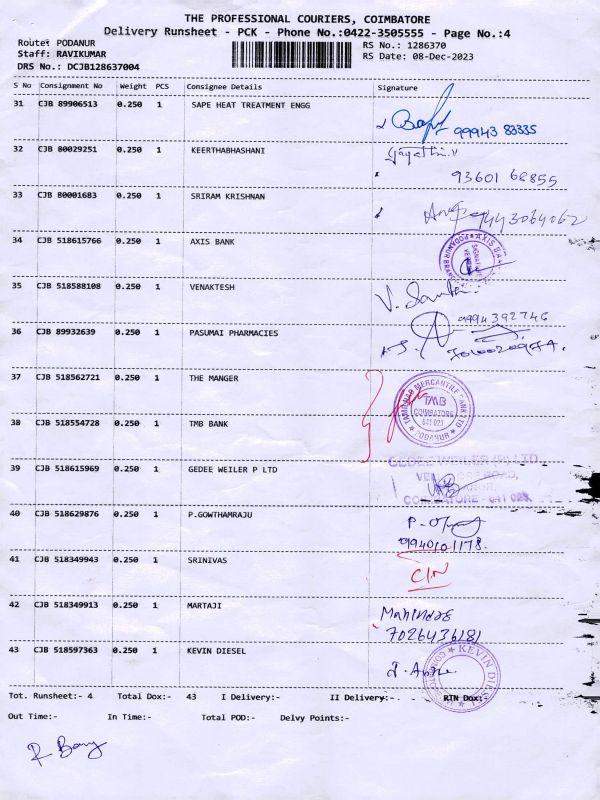 THE PROFESSIONAL COURIERS, COIMBATORE
Delivery Runsheet - PCK - Phone No.:0422-3505555 - Page No.:4
Route: PODANUR
RS No.: 1286370
Staff: RAVIKUMAR
RS Date: 08-Dec-2023
DRS No.: DCJB128637004
S No Consignment No Weight PCS Consignee Details Signature
31 CJB 89906513 0.250 1 SAPE HEAT TREATMENT ENGG
99943 83335
32 CJB 80029251 0.250 1 KEERTHABHASHANI
93601 68855
33 CJB 80001683 0.250 1 SRIRAM KRISHNAN
9443064062
34 CJB 518615766 0.250 1 AXIS BANK
35 CJB 518588108 0.250 1 VENAKTESH
9994392746
36 CJB 89932639 0.250 1 PASUMAI PHARMACIES
37 CJB 518562721 0.250 1 THE MANGER
TAMILNAD MERCANTILE BANK LTD
TMB
COIMBATORE
641 023
PODANUR
38 CJB 518554728 0.250 1 TMB BANK
39 CJB 518615969 0.250 1 GEDEE WEILER P LTD
GEDEE WEILER (P) LTD
ROAD,
COIMBATORE - 641 023
40 CJB 518629876 0.250 1 P.GOWTHAMRAJU
9940101178.
41 CJB 518349943 0.250 1 SRINIVAS
CIN
42 CJB 518349913 0.250 1 MARTAJI
7026436181
43 CJB 518597363 0.250 1 KEVIN DIESEL
KEVIN
Tot. Runsheet:- 4 Total Dox:- 43 I Delivery:- II Delivery:- RTN Dox:-
Out Time:- In Time:- Total POD:- Delvy Points:-